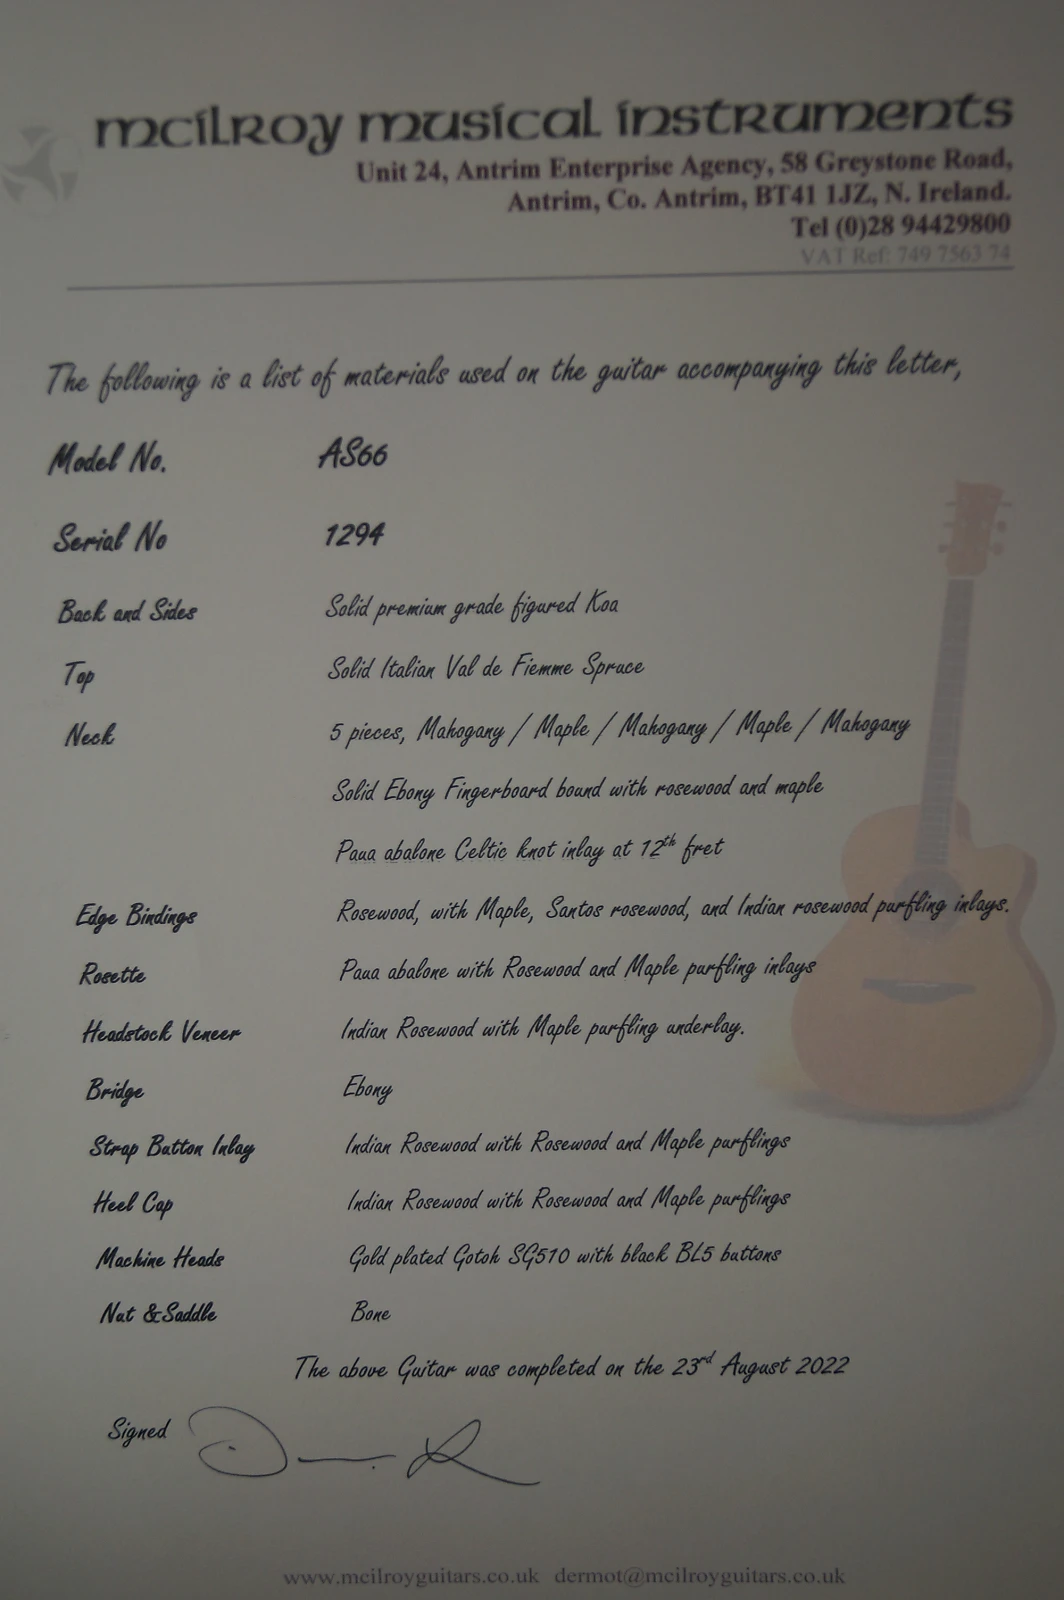 mcilroy musical instruments
Unit 24, Antrim Enterprise Agency, 58 Greystone Road,
Antrim, Co. Antrim, BT41 1JZ, N. Ireland.
Tel (0)28 94429800
VAT Ref: 749 7563 74
The following is a list of materials used on the guitar accompanying this letter,
Model No. AS66
Serial No 1294
Back and Sides Solid premium grade figured Koa
Top Solid Italian Val de Fiemme Spruce
Neck 5 pieces, Mahogany / Maple / Mahogany / Maple / Mahogany
Solid Ebony Fingerboard bound with rosewood and maple
Paua abalone Celtic knot inlay at 12th fret
Edge Bindings Rosewood, with Maple, Santos rosewood, and Indian rosewood purfling inlays.
Rosette Paua abalone with Rosewood and Maple purfling inlays
Headstock Veneer Indian Rosewood with Maple purfling underlay.
Bridge Ebony
Strap Button Inlay Indian Rosewood with Rosewood and Maple purflings
Heel Cap Indian Rosewood with Rosewood and Maple purflings
Machine Heads Gold plated Gotoh SG510 with black BL5 buttons
Nut &Saddle Bone
The above Guitar was completed on the 23rd August 2022
Signed
www.mcilroyguitars.co.uk dermot@mcilroyguitars.co.uk